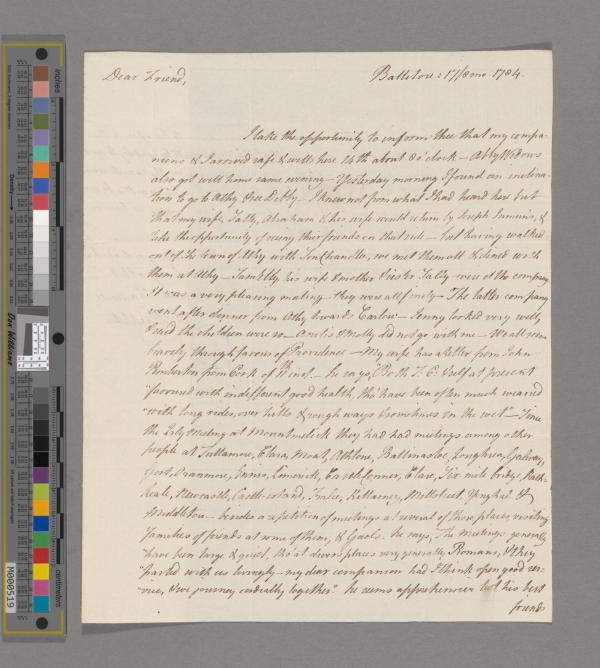 Dear Friend,
Ballitore: 17/8mo. 1784.
I take the opportunity to inform thee that my compa-
nions & I arrived safe & well here 14th about 8 o'clock – Abby Widows
also got well home same evening – Yesterday morning I found an inclina-
tion to go to Athy – I knew not from what I had heard here but
that my wife, Sally, Abraham & his wife would return by Joseph &
take the opportunity of seeing their friends on that side – but having walked
out of the town of Athy with Tom Chandlee, we met them all & dined with
them at Athy – his wife & mother & sister Sally were of the company
It was a very pleasing meeting – they were all finely – The latter company
went after dinner from Athy towards Carlow – Jenny looked very well,
& said the children were so – & Molly did not go with me – We all seem
bravely through favour of Providence – My wife has a letter from John
Pemberton from Cork of inst. – he says, "Both T. C. & self at present
"favoured with indifferent good health, tho' have been often much wearied
"with long rides, over hills & rough ways & sometimes in the wet" – Since
the Qrly Meeting at Mountmelick they had had meetings among other
people at Tullamore, Clara, Moat, Athlone, Ballinasloe, Loughrea, Galway,
Gort, Ennis, Limerick, Clare, Six mile bridge, Rath-
keale, Newcastle, Castle-island, Tralee, Killarney, Millstreet, Youghal &
Middleton – besides a repetition of meetings at several of those places, visiting
families of friends at some of them, & Gaols. he says, "The Meetings generally
"have been large & quiet, tho' at divers places very generally Romans, & they
"parted with us lovingly – my dear companion had I think open good ser-
"vice, & we journey cordially together." he seems apprehensive his best
friends
inches
centimetres
Density
Don Williams
M000519